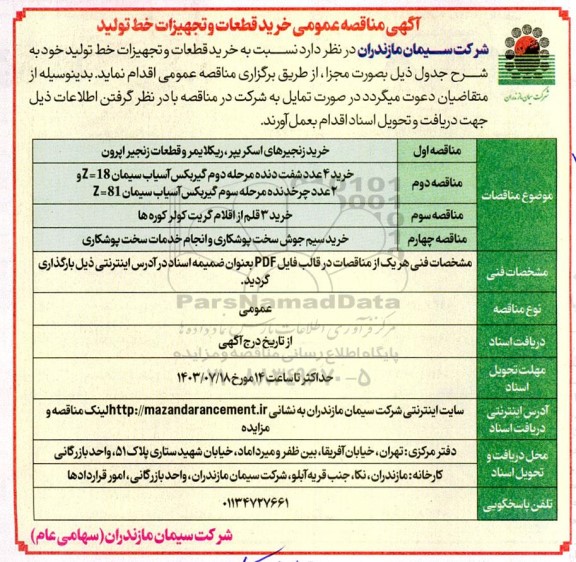 آگهی مناقصه عمومی خرید قطعات و تجهیزات خط تولید
شرکت سیمان مازندران
شرکت سیمان مازندران در نظر دارد نسبت به خرید قطعات و تجهیزات خط تولید خود به
شرح جدول ذیل بصورت مجزا، از طریق برگزاری مناقصه عمومی اقدام نماید. بدینوسیله از
متقاضیان دعوت میگردد در صورت تمایل به شرکت در مناقصه با در نظر گرفتن اطلاعات ذیل
جهت دریافت و تحویل اسناد اقدام بعمل آورند.
موضوع مناقصات
مناقصه اول خرید زنجیرهای اسکریپر، ریکلایمر و قطعات زنجیر اپرون
مناقصه دوم خرید ۴ عدد شفت دنده مرحله دوم گیربکس آسیاب سیمان Z=18 و
۲ عدد چرخدنده مرحله سوم گیربکس آسیاب سیمان Z=81
مناقصه سوم خرید ۳ قلم از اقلام گریت کولر کوره ها
مناقصه چهارم خرید سیم جوش سخت پوشکاری و انجام خدمات سخت پوشکاری
مشخصات فنی مشخصات فنی هر یک از مناقصات در قالب فایل PDF بعنوان ضمیمه اسناد در آدرس اینترنتی ذیل بارگذاری
گردید.
ParsNamadData
نوع مناقصه عمومی
دریافت اسناد از تاریخ درج آگهی
پایگاه اطلاع رسانی مناقصه و مزایده
مهلت تحویل
اسناد
حداکثر تا ساعت ۱۴ مورخ ۱۴۰۳/۰۷/۱۸
آدرس اینترنتی
دریافت اسناد
سایت اینترنتی شرکت سیمان مازندران به نشانی http://mazandarancement.ir لینک مناقصه و
مزایده
محل دریافت و
تحویل اسناد
دفتر مرکزی: تهران، خیابان آفریقا، بین ظفر و میرداماد، خیابان شهید ستاری پلاک ۵۱، واحد بازرگانی
کارخانه: مازندران، نکا، جنب قریه آبلو، شرکت سیمان مازندران، واحد بازرگانی، امور قراردادها
تلفن پاسخگویی ۰۱۱۳۴۷۲۷۶۶۱
شرکت سیمان مازندران (سهامی عام)